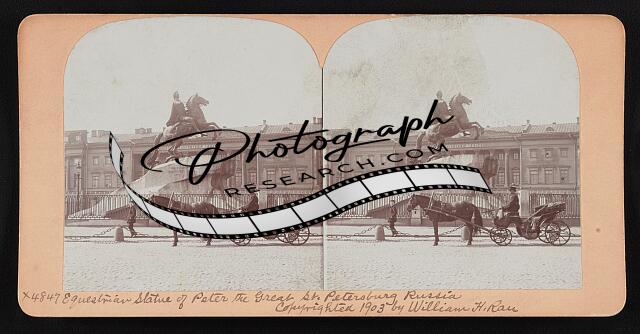 Photograph
RESEARCH.COM
x4847 Equestrian Statue of Peter the Great St. Petersburg Russia
Copyrighted 1903 by William H. Rau